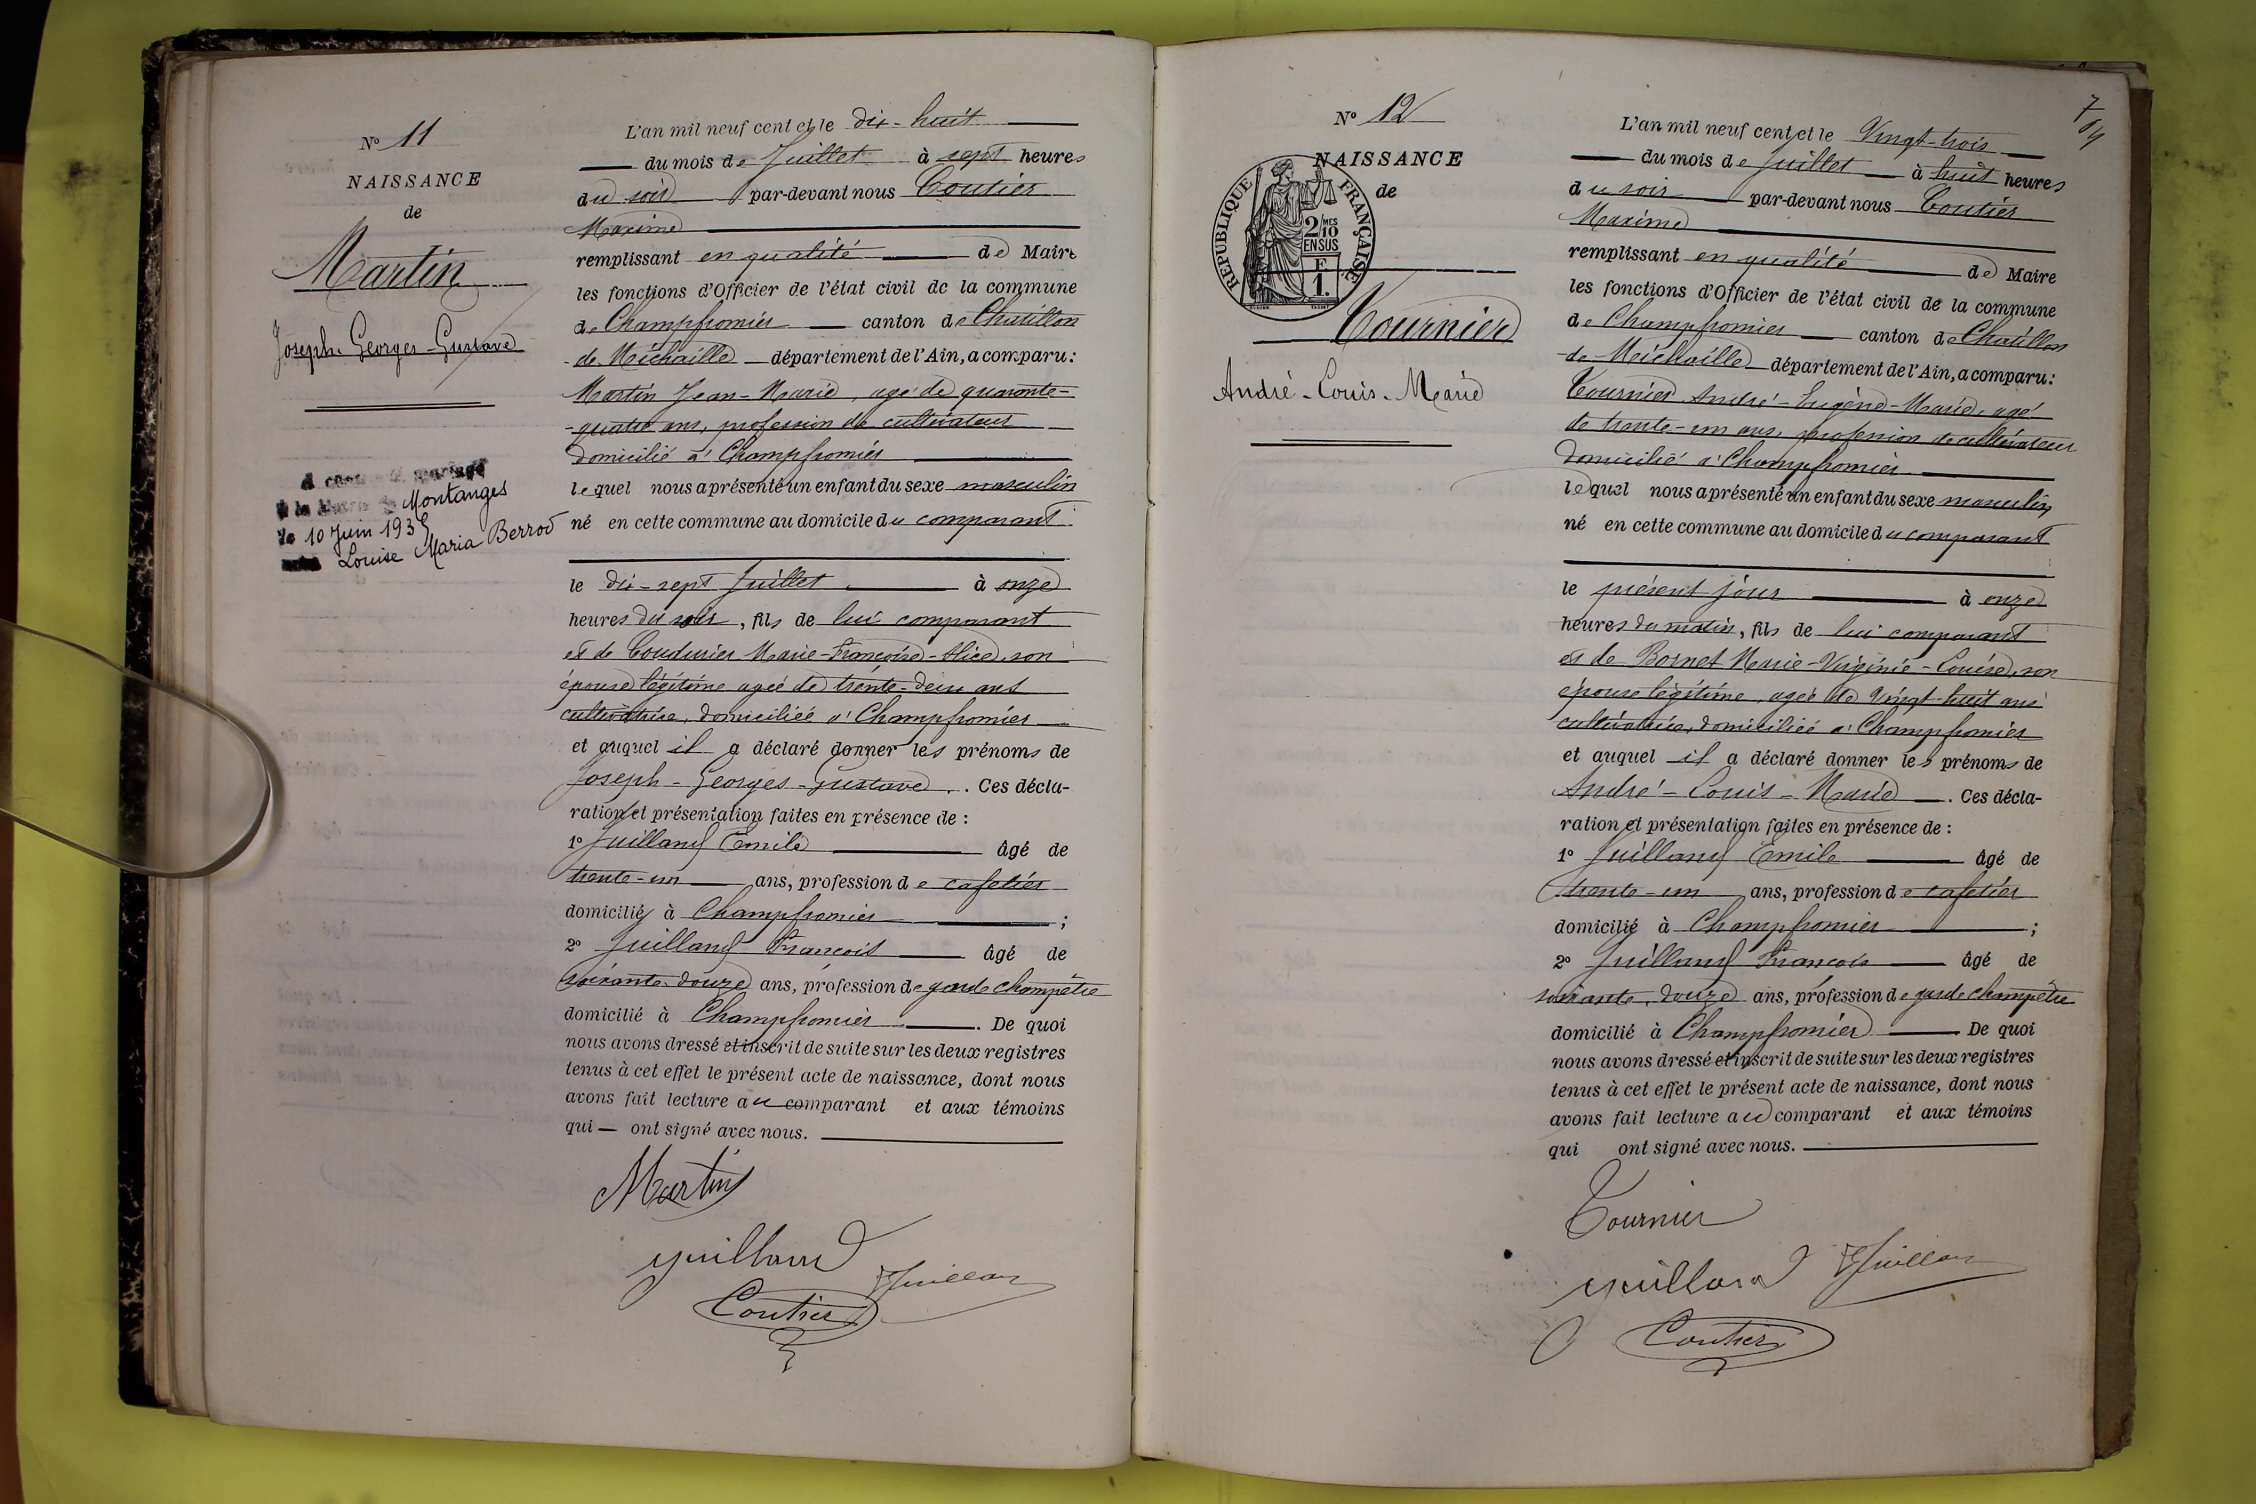 N° 11
NAISSANCE
de
Martin
Joseph-Georges-Gustave
A contracté mariage
à la Mairie de Montanges
le 10 Juin 193
avec Louise Maria Berrod
L'an mil neuf cent et le dix-huit
du mois de Juillet à sept heures
du soir par-devant nous Coutier
Maxime
remplissant en qualité de Maire
les fonctions d'Officier de l'état civil de la commune
de Champfromier canton de Chatillon
-de-Michaille département de l'Ain, a comparu :
Martin Jean-Marie, agé de quarante-
-quatre ans, profession de cultivateur
domicilié à Champfromier
lequel nous a présenté un enfant du sexe masculin
né en cette commune au domicile du comparant
le dix-sept Juillet à onze
heures du soir, fils de lui comparant
et de Coudurier Marie-Françoise-Alice, son
épouse légitime agée de trente-deux ans
cultivatrice, domiciliée à Champfromier
et auquel il a déclaré donner les prénoms de
Joseph-Georges-Gustave. Ces décla-
ration et présentation faites en présence de :
1° Juilland Emile âgé de
trente-un ans, profession de cafetier
domicilié à Champfromier ;
2° Juilland François âgé de
soixante-douze ans, profession de garde champêtre
domicilié à Champfromier. De quoi
nous avons dressé et inscrit de suite sur les deux registres
tenus à cet effet le présent acte de naissance, dont nous
avons fait lecture au comparant et aux témoins
qui ont signé avec nous.
Martin
Juilland
F Juillan
Coutier
7
N° 12
NAISSANCE
de
RÉPUBLIQUE FRANÇAISE
2/10 MES
EN SUS
F
1.
Tournier
André-Louis-Marie
L'an mil neuf cent et le Vingt-trois
du mois de Juillet à huit heures
du soir par-devant nous Coutier
Maxime
remplissant en qualité de Maire
les fonctions d'Officier de l'état civil de la commune
de Champfromier canton de Chatillon
-de-Michaille département de l'Ain, a comparu :
Tournier André-Eugène-Marie, agé
de trente-un ans, profession de cultivateur
domicilié à Champfromier
lequel nous a présenté un enfant du sexe masculin
né en cette commune au domicile du comparant
le présent jour à onze
heures du matin, fils de lui comparant
et de Bornet Marie-Virginie-Louise, son
épouse légitime, agée de Vingt-huit ans
cultivatrice, domiciliée à Champfromier
et auquel il a déclaré donner les prénoms de
André-Louis-Marie. Ces décla-
ration et présentation faites en présence de :
1° Juilland Emile âgé de
trente-un ans, profession de cafetier
domicilié à Champfromier ;
2° Juilland François âgé de
soixante-douze ans, profession de garde champêtre
domicilié à Champfromier De quoi
nous avons dressé et inscrit de suite sur les deux registres
tenus à cet effet le présent acte de naissance, dont nous
avons fait lecture au comparant et aux témoins
qui ont signé avec nous.
Tournier
Juilland
F Juillan
Coutier